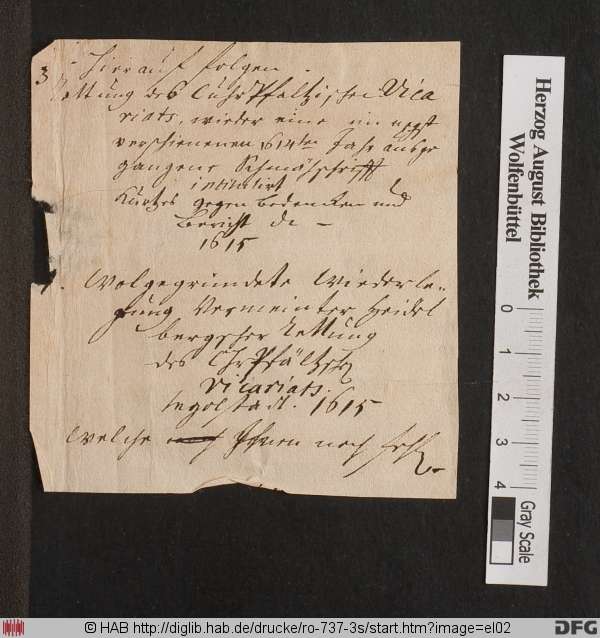 3
Hierauf folgen
Rettung des ChurPfaltzischen Vica
riats, wieder eine im negst
verschienenen 1614ten Jahr außge
gangene Schmähschrifft
intitulirt
Kurtzes gegen Bedencken und
Bericht de –
1615
Wolgegründete Wiederle-
gung Vermeinter Heidel
bergscher Rettung
des ChrPfältz
Vicariats.
Ingolstadt. 1615
Welche Ihnen noch
Herzog August Bibliothek
Wolfenbüttel
0 1 2 3 4
Gray Scale
© HAB http://diglib.hab.de/drucke/ro-737-3s/start.htm?image=el02
DFG